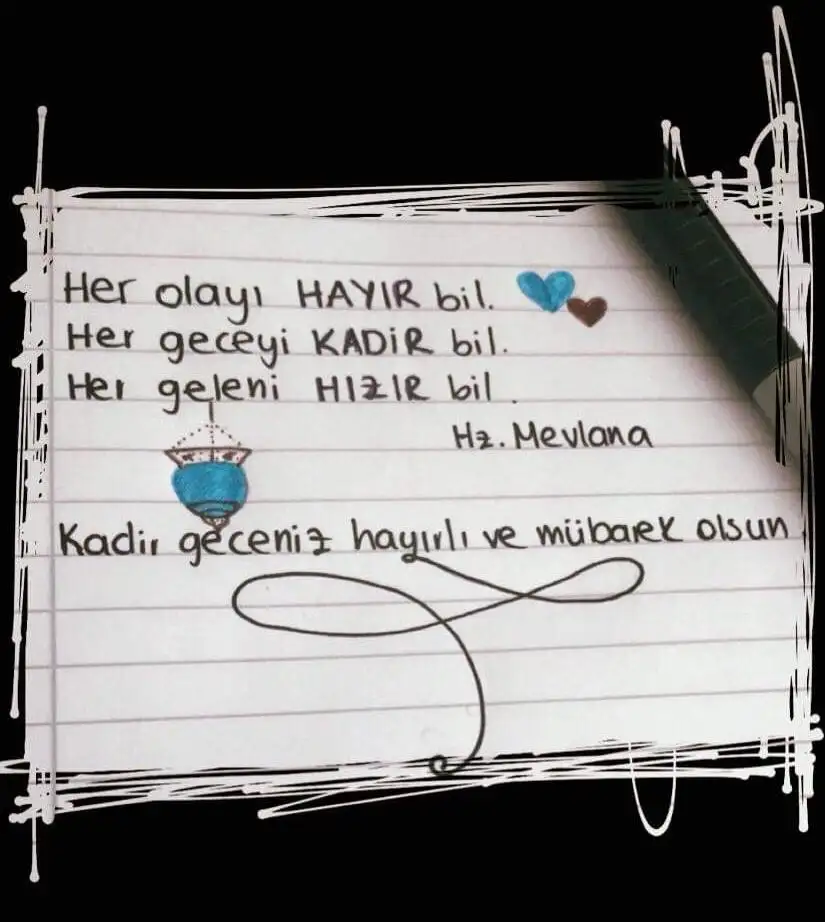 Her olayı HAYIR bil.
Her geceyi KADİR bil.
Her geleni HIZIR bil.
Hz. Mevlana
Kadir geceniz hayırlı ve mübarek olsun